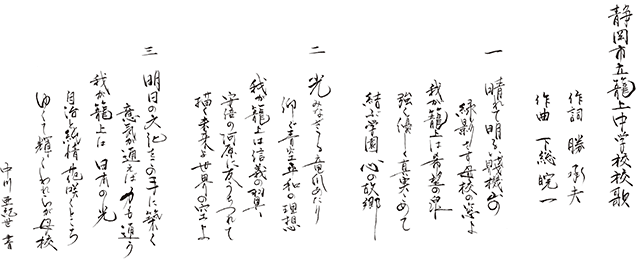 静岡市立籠上中学校校歌
作詞 勝 承夫
作曲 下総 皖一
一 晴れて明るい賤機山の
緑影さす母校の窓よ
我が籠上は希望の泉
強く優しく真実こめて
結ぶ学園 心の故郷
二 光みなぎる
仰ぐ青空平和の理想
我が籠上は信義の翼
安倍の河原に友うちつれて
描く未来は世界の空よ
三 明日の文化をこの手に築く
意気が通えば力も通う
我が籠上は 日本の光
自治と純情花咲くところ
ゆくて輝くわれらが母校
中川 書